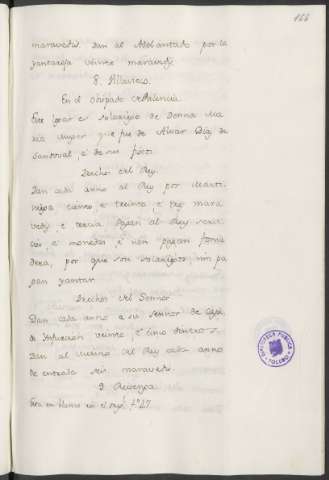 maravedis. Dan al Adelantado por la
yantareja veinte maravedis
8. Villaveza
En el obispado de Palencia
Este logar es solariego de Donna Ma
ria muger que fue de Alvar Diaz de
Sandoval, é de sus fijos.
Derechos del Rey.
Dan cada anno al Rey por Marti-
niega ciento é treinta é tres mara
vedis é tercia pagan al Rey servi
cios é monedas é non pagan fonsa
dera, por que son solariegos, nin pa
gan yantar
Derechos del Sennor
Dan cada anno a su sennor de cada
de infurcion veinte, é cinco dineros
Dan al merino del Rey cada anno
de entrada seis maravedis
9
Esta en blanco en el orig.l fº 27
BIBLIOTECA PUBLICA
TOLEDO